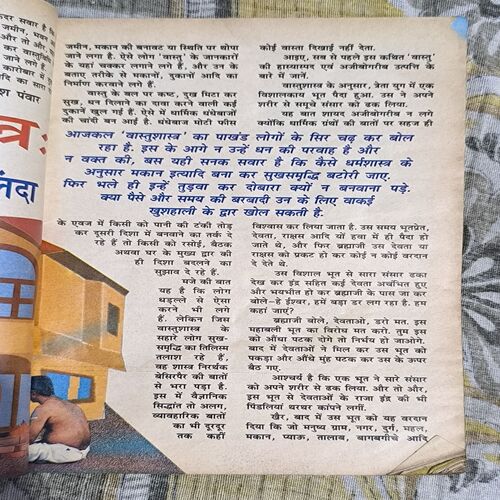 दर सवार है कि
जमीन, भवन
पंवार
स्त्र :
नंदा
जमीन, मकान की बनावट या स्थिति पर थोपा
जाने लगा है. ऐसे लोग 'वास्तु' के जानकारों
के यहां चक्कर लगाने लगे हैं, और उन के
बताए तरीके से मकानों, दुकानों आदि का
निर्माण करवाने लगे हैं.
वास्तु के बल पर कष्ट, दुख मिटा कर
सुख, धन दिलाने का दावा करने वाली कई
दुकानें खुल गई हैं. ऐसे में धार्मिक धंधेबाजों
की चांदी बन आई है. धंधेबाज मोटी फीस
कोई वास्ता दिखाई नहीं देता.
आइए, सब से पहले इस कथित 'वास्तु'
की हास्यास्पद एवं अजीबोगरीब उत्पत्ति के
बारे में जानें.
वास्तुशास्त्र के अनुसार, त्रेता युग में एक
विशालकाय भूत पैदा हुआ. उस ने अपने
शरीर से समूचे संसार को ढक लिया.
यह बात शायद अजीबोगरीब न लगे
क्योंकि धार्मिक ग्रंथों की बातों पर सहज ही
आजकल 'वास्तुशास्त्र' का पाखंड लोगों के सिर चढ़ कर बोल
रहा है. इस के आगे न उन्हें धन की परवाह है और
न वक्त की, बस यही सनक सवार है कि कैसे धर्मशास्त्र के
अनुसार मकान इत्यादि बना कर सुखसमृद्धि बटोरी जाए.
फिर भले ही इन्हें तुड़वा कर दोबारा क्यों न बनवाना पड़े.
क्या पैसे और समय की बरबादी उन के लिए वाकई
खुशहाली के द्वार खोल सकती है.
के एवज में किसी को पानी की टंकी तोड़
कर दूसरी दिशा में बनवाने का तर्क दे
रहे हैं तो किसी को रसोई, बैठक
अथवा घर के मुख्य द्वार की
ही दिशा बदलने का
सुझाव दे रहे हैं.
मजे की बात
यह है कि लोग
धड़ल्ले से ऐसा
करने भी लगे
हैं. लेकिन जिस
वास्तुशास्त्र के
सहारे लोग सुख-
समृद्धि का तिलिस्म
तलाश रहे हैं,
वह शास्त्र निरर्थक
बेसिरपैर की बातों
से भरा पड़ा है.
इस में वैज्ञानिक
सिद्धांत तो अलग,
व्यावहारिक बातों
का भी दूरदूर
तक कहीं
विश्वास कर लिया जाता है. उस समय भूतप्रेत,
देवता, राक्षस आदि यों हवा में ही पैदा हो
जाते थे, और फिर ब्रह्माजी उस देवता या
राक्षस को प्रकट हो कर कोई न कोई वरदान
दे देते थे.
उस विशाल भूत से सारा संसार ढका
देख कर इंद्र सहित कई देवता अचंभित हुए
और भयभीत हो कर ब्रह्माजी के पास जा कर
बोले–हे ईश्वर, हमें बड़ा डर लग रहा है. हम
कहां जाएं?
ब्रह्माजी बोले, देवताओं, डरो मत. इस
महाबली भूत का विरोध मत करो. तुम इस
को औंधा पटक दोगे तो निर्भय हो जाओगे.
बाद में देवताओं ने मिल कर उस भूत को
पकड़ा और औंधे मुंह पटक कर उस के ऊपर
बैठ गए.
आश्चर्य है कि एक भूत ने सारे संसार
को अपने शरीर से ढक लिया. और तो और,
इस भूत से देवताओं के राजा इंद्र की भी
पिंडलियां थरथर कांपने लगीं.
खैर, बाद में उस भूत को यह वरदान
दिया कि जो मनुष्य ग्राम, नगर, दुर्ग, महल,
मकान, प्याऊ, तालाब, बागबगीचे आदि